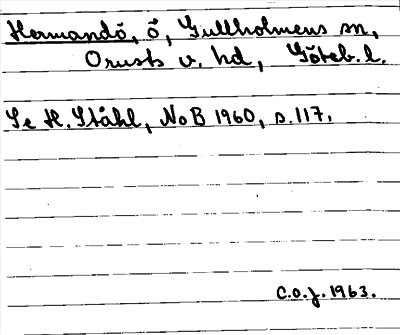 Hermandö, ö, Gullholmens sn,
Orusts v. hd, Göteb. l.
Se H. Ståhl, NoB 1960, s. 117.
C.O.J. 1963.